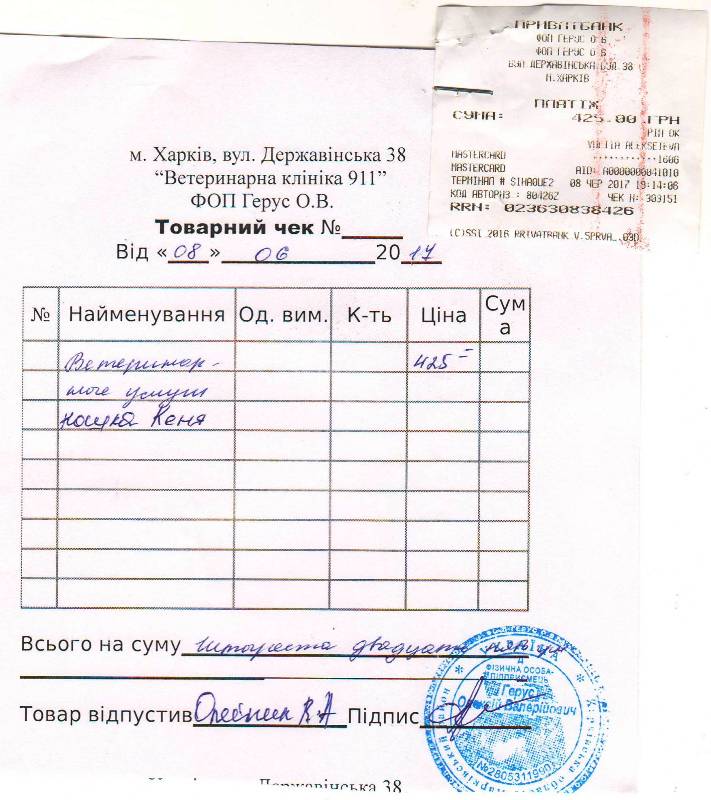 ПРИВАТБАНК
ФОП ГЕРУС О В
ФОП ГЕРУС О В
ВУЛ ДЕРЖАВІНСЬКА БУД.38
М.ХАРКІВ
ПЛАТІЖ
СУМА: 425.00 ГРН
PIN OK
ALEKSEIEVA
MASTERCARD 1606
MASTERCARD AID: A0000000041010
ТЕРМІНАЛ # S1HAOUE2 08 ЧЕР 2017 19:14:06
КОД АВТОРИЗ : 80426Z ЧЕК N: 303151
RRN: 023630838426
(C)SSI 2016 PRIVATBANK
м. Харків, вул. Державінська 38
“Ветеринарна клініка 911”
ФОП Герус О.В.
Товарний чек №
Від «08» 06 2017
№ Найменування Од. вим. К-ть Ціна Сума
Ветеринар- 425=
ные услуги
кошка Кеня
Всього на суму четыреста двадцать пять
Товар відпустив Олейник В А Підпис
УКРАЇНА
ФІЗИЧНА ОСОБА-
ПІДПРИЄМЕЦЬ
Герус
Валерійович
Державінська 38